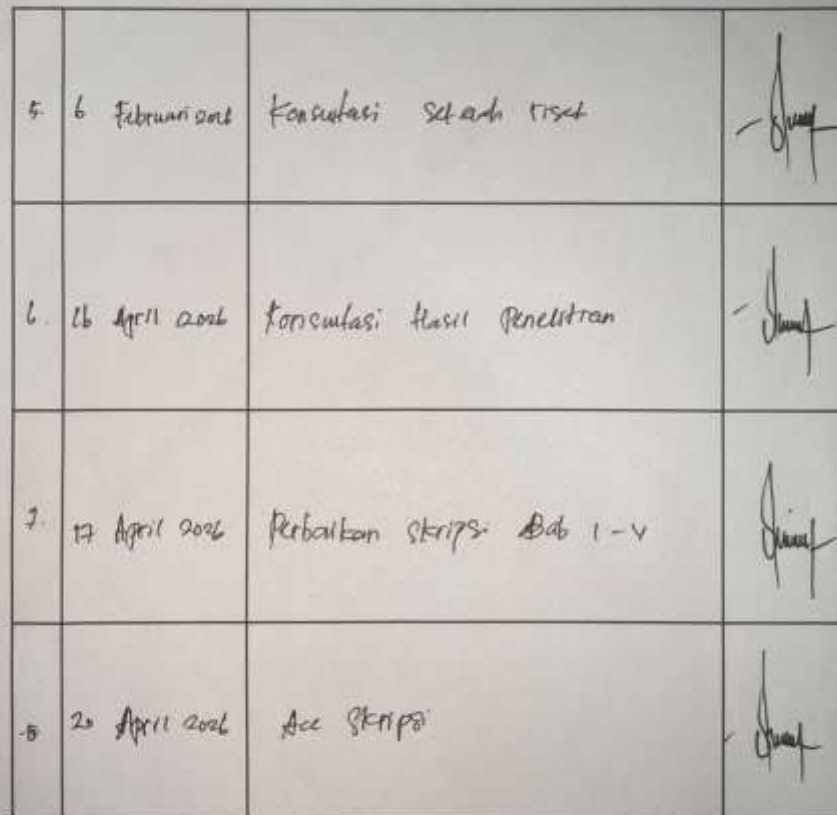 5. 6 Februari 2026 Konsultasi Setelah riset
6. 16 April 2026 Konsultasi Hasil Penelitian
7. 17 April 2026 Perbaikan Skripsi Bab 1-V
8 20 April 2026 Acc Skripsi